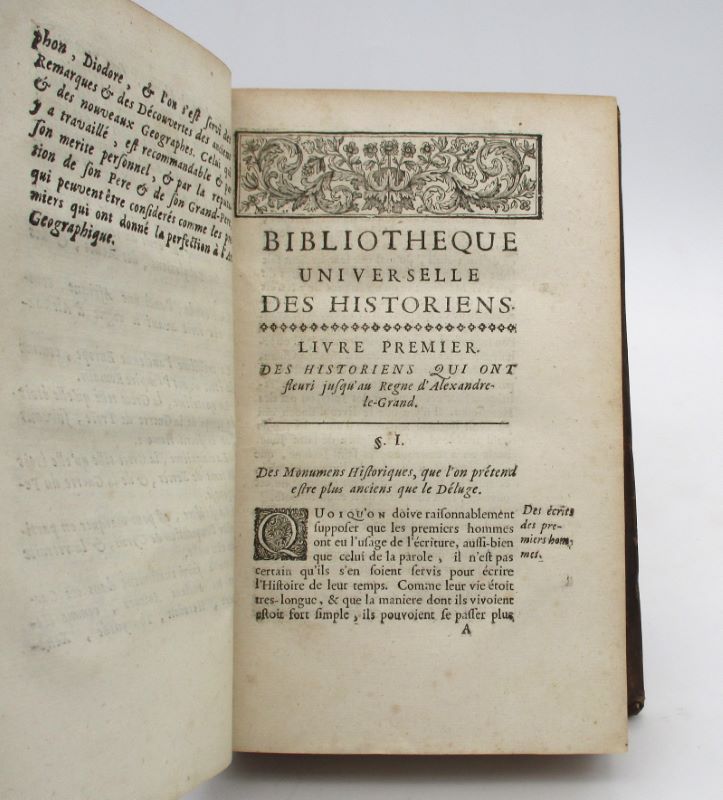 phon, Diodore, & l'on s'est servi des
Remarques & des Découvertes des anciens
& des nouveaux Geographes. Celui qui
y a travaillé, est recommandable & par
son merite personnel, & par la reputa-
tion de son Pere & de son Grand-pere,
qui peuvent être considerés comme les pre-
miers qui ont donné la perfection à l'Art
Geographique.
BIBLIOTHEQUE
UNIVERSELLE
DES HISTORIENS.
LIVRE PREMIER.
DES HISTORIENS QUI ONT
fleuri jusqu'au Regne d'Alexandre-
le-Grand.
§. I.
Des Monumens Historiques, que l'on prétend
estre plus anciens que le Déluge.
QUOIQU'ON doive raisonnablement
supposer que les premiers hommes
ont eu l'usage de l'écriture, aussi-bien
que celui de la parole, il n'est pas
certain qu'ils s'en soient servis pour écrire
l'Histoire de leur temps. Comme leur vie étoit
tres-longue, & que la maniere dont ils vivoient
estoit fort simple, ils pouvoient se passer plus
A
Des écrits
des pre-
miers hom-
mes.